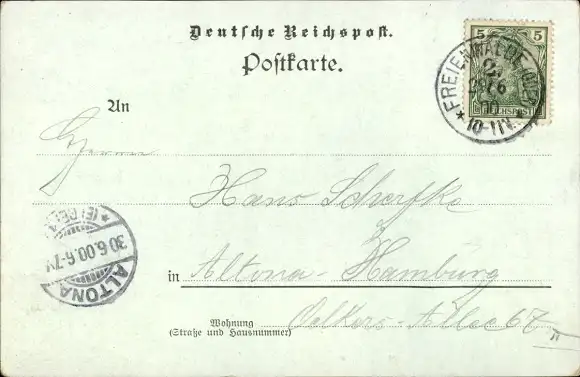 Deutsche Reichspost.
Postkarte.
5 5
REICHSPOST
FREIENWALDE
29/6
00
* 10-11V.
An
Herrn
Hans Scherfke
in Altona-Hamburg
Wohnung
(Straße und Hausnummer)
Oelkers-Allee 67 II
ALTONA
30.6.00.6-7V